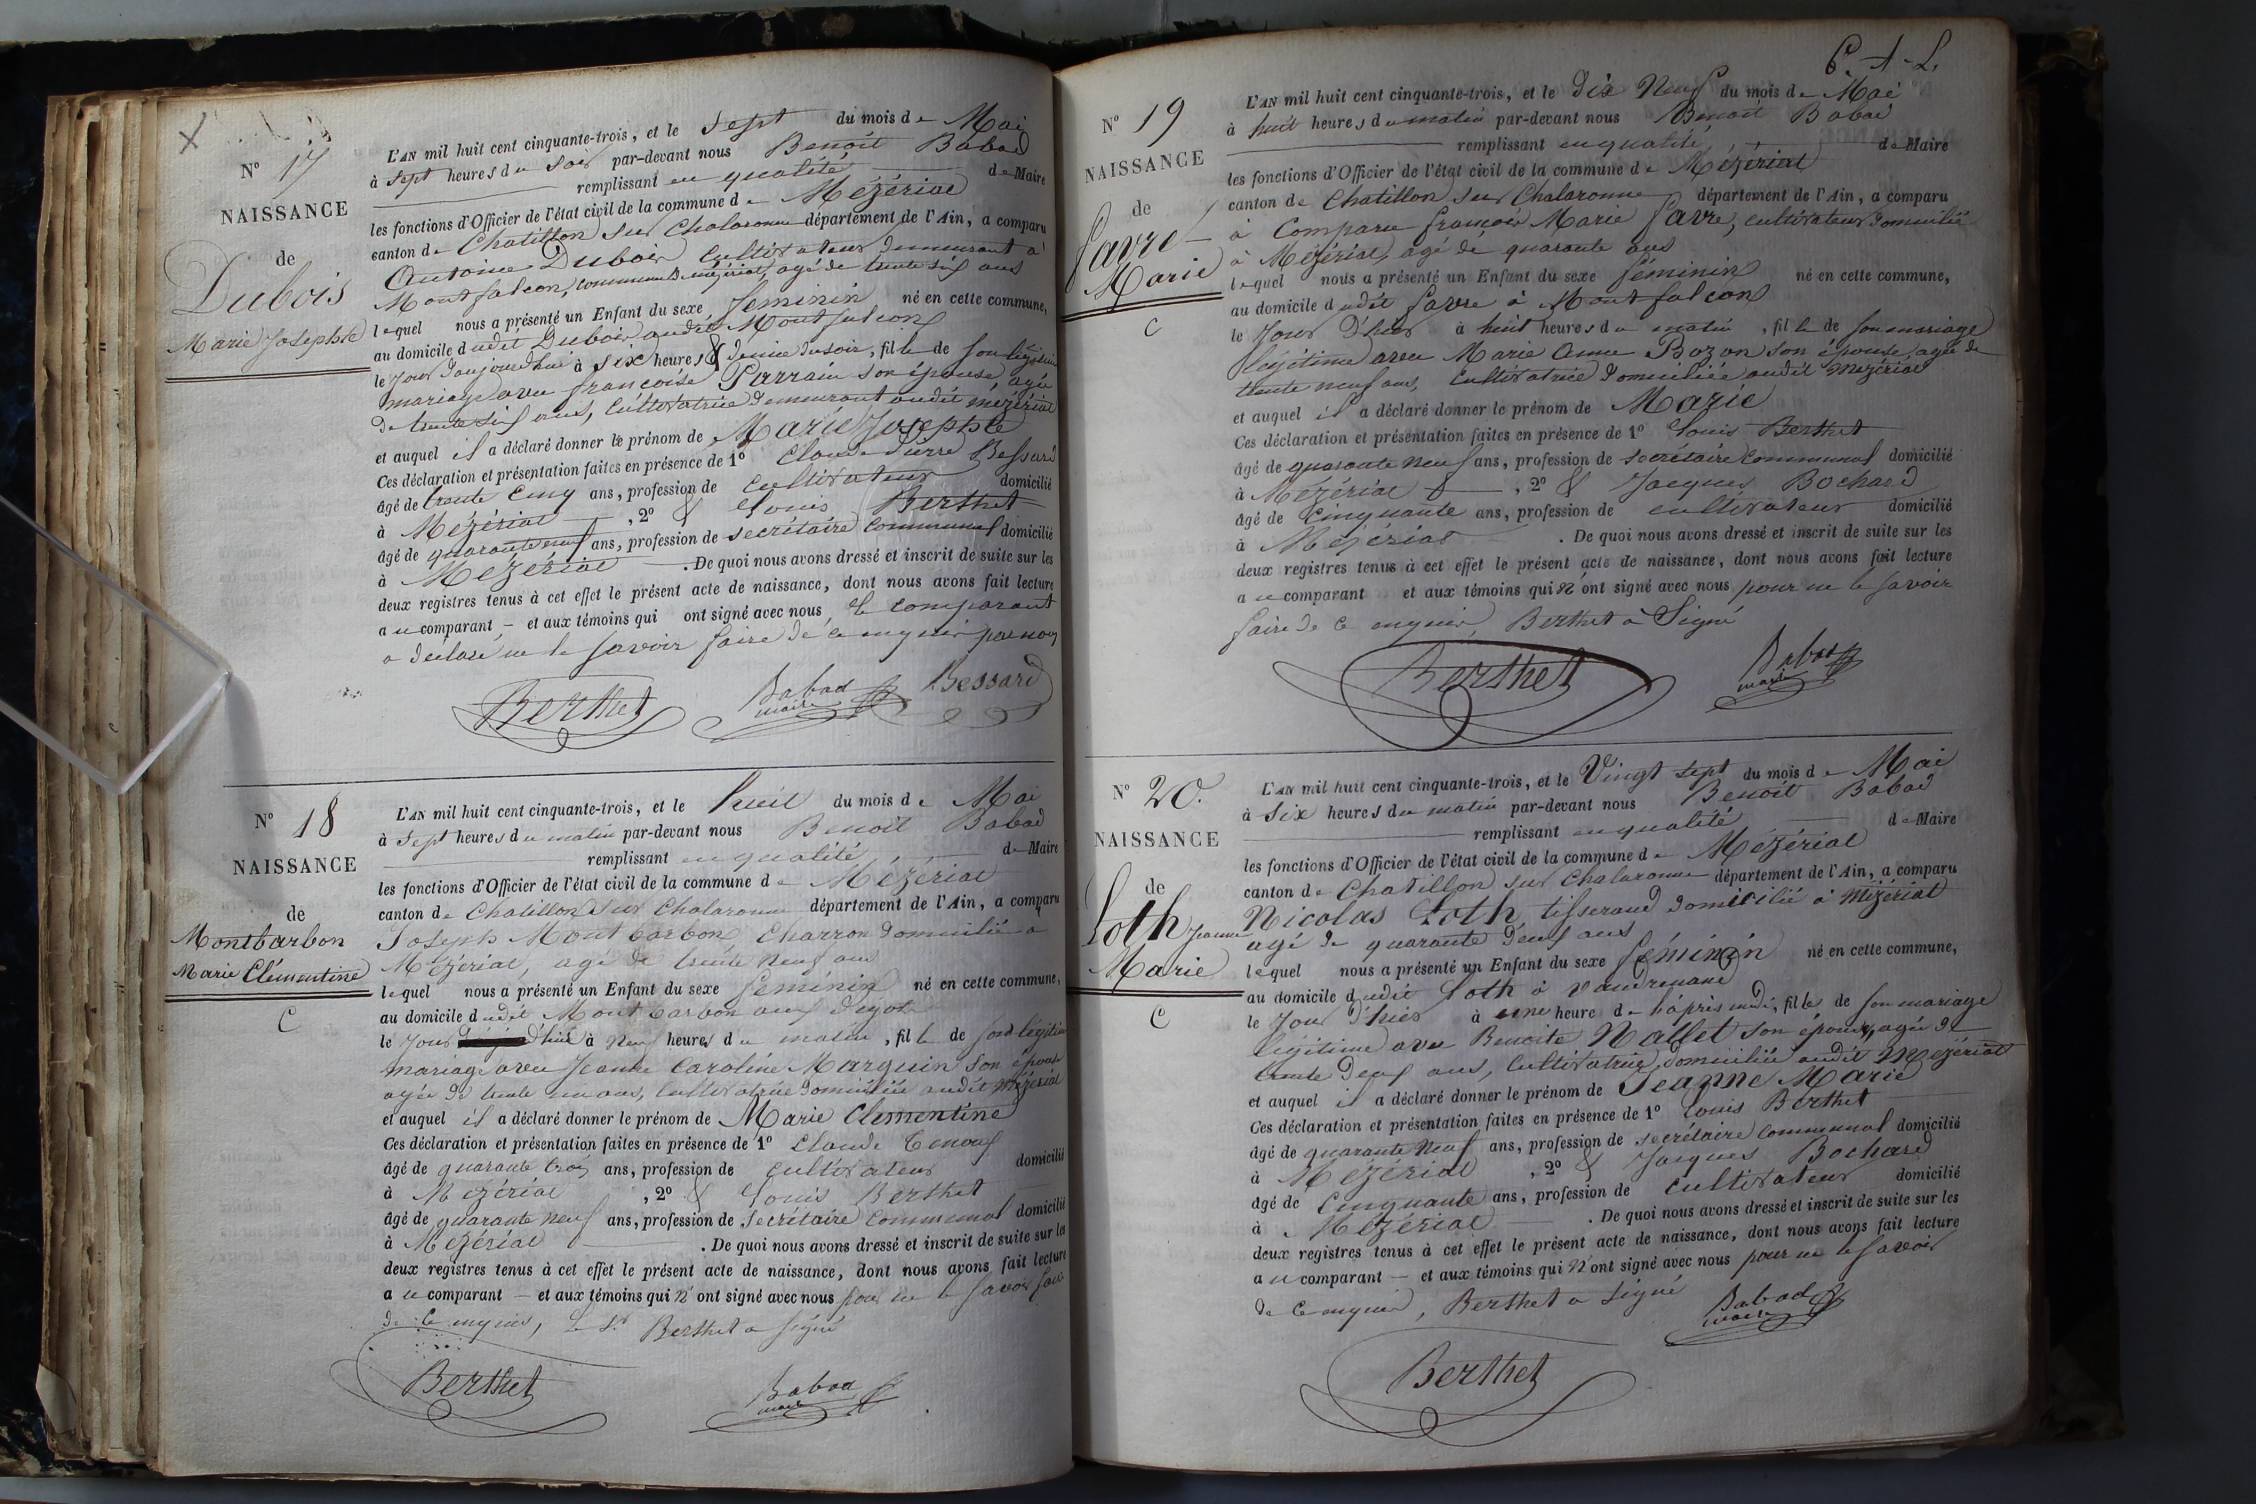 N° 17
NAISSANCE
de
Dubois
Marie Josephte
L'AN mil huit cent cinquante-trois, et le sept du mois de Mai
à sept heures du soir par-devant nous Benoît Babad
remplissant en qualité de Maire
les fonctions d'Officier de l'état civil de la commune de Mézériat
canton de Chatillon sur Chalaronne département de l'Ain, a comparu
Antoine Dubois Cultivateur demeurant à
Montfalcon, commune de mézériat, agé de trente six ans
lequel nous a présenté un Enfant du sexe féminin né en cette commune,
au domicile dudit Dubois audit Montfalcon
le jour d'aujourd'hui à six heures & demie du soir, fille de son légitime
mariage avec françoise Parrain son épouse agée
de trente six ans, cultivatrice demeurant audit mézériat
et auquel il a déclaré donner le prénom de Marie Josephte
Ces déclaration et présentation faites en présence de 1° Claude Pierre Bessard
âgé de trente cinq ans, profession de cultivateur domicilié
à Mézériat, 2° & Louis Berthet
âgé de quarante neuf ans, profession de secrétaire communal domicilié
à Mézériat. De quoi nous avons dressé et inscrit de suite sur les
deux registres tenus à cet effet le présent acte de naissance, dont nous avons fait lecture
au comparant et aux témoins qui ont signé avec nous, le comparant
a déclaré ne le savoir faire de ce enquis par nous
Berthet Babad maire Bessard
N° 18
NAISSANCE
de
Montbarbon
Marie Clémentine
C
L'AN mil huit cent cinquante-trois, et le huit du mois de Mai
à sept heures du matin par-devant nous Benoît Babad
remplissant en qualité de Maire
les fonctions d'Officier de l'état civil de la commune de Mézériat
canton de Chatillon sur Chalaronne département de l'Ain, a comparu
Joseph Montbarbon Charron domicilié à
Mézériat, agé de trente neuf ans
lequel nous a présenté un Enfant du sexe féminin né en cette commune,
au domicile dudit Montbarbon aux
le jour d'hier à neuf heures du matin, fille de son légitime
mariage avec Jeanne Caroline Marquin son épouse
agée de trente un ans, cultivatrice domiciliée audit mézériat
et auquel il a déclaré donner le prénom de Marie Clementine
Ces déclaration et présentation faites en présence de 1° Claude
âgé de quarante trois ans, profession de cultivateur domicilié
à Mézériat, 2° & Louis Berthet
âgé de quarante neuf ans, profession de secrétaire communal domicilié
à Mézériat. De quoi nous avons dressé et inscrit de suite sur les
deux registres tenus à cet effet le présent acte de naissance, dont nous avons fait lecture
au comparant et aux témoins qui n'ont signé avec nous pour ne le savoir faire
de ce enquis, le Sr Berthet a signé
Berthet Babad maire
C. A. L.
N° 19
NAISSANCE
de
favre
Marie
C
L'AN mil huit cent cinquante-trois, et le dix neuf du mois de Mai
à huit heures du matin par-devant nous Benoit Babad
remplissant en qualité de Maire
les fonctions d'Officier de l'état civil de la commune de Mézériat
canton de Chatillon sur Chalaronne département de l'Ain, a comparu
à Comparu françois Marie favre, cultivateur domicilié
à Mézériat, agé de quarante ans
lequel nous a présenté un Enfant du sexe féminin né en cette commune,
au domicile dudit favre à Montfalcon
le jour d'hier à huit heures du matin, fille de son mariage
légitime avec Marie Anne Bozon son épouse, agée de
trente neuf ans, cultivatrice domiciliée audit mézériat
et auquel il a déclaré donner le prénom de Marie
Ces déclaration et présentation faites en présence de 1° Louis Berthet
âgé de quarante neuf ans, profession de secrétaire communal domicilié
à Mézériat, 2° & Jacques Bochard
âgé de cinquante ans, profession de cultivateur domicilié
à Mézériat. De quoi nous avons dressé et inscrit de suite sur les
deux registres tenus à cet effet le présent acte de naissance, dont nous avons fait lecture
au comparant et aux témoins qui n'ont signé avec nous pour ne le savoir
faire de ce enquis, Berthet a Signé
Berthet Babad maire
N° 20.
NAISSANCE
de
Loth Jeanne
Marie
C
L'AN mil huit cent cinquante-trois, et le Vingt sept du mois de Mai
à Six heures du matin par-devant nous Benoit Babad
remplissant en qualité de Maire
les fonctions d'Officier de l'état civil de la commune de Mézériat
canton de Chatillon sur Chalaronne département de l'Ain, a comparu
Nicolas Loth, tisserand domicilié à Mézériat
agé de quarante deux ans
lequel nous a présenté un Enfant du sexe féminin né en cette commune,
au domicile dudit Loth à Vaudrenand
le jour d'hier à une heure de l'après midi, fille de son mariage
légitime avec Benoite Nallet son épouse, agée de
trente deux ans, cultivatrice domiciliée audit Mézériat
et auquel il a déclaré donner le prénom de Jeanne Marie
Ces déclaration et présentation faites en présence de 1° Louis Berthet
âgé de quarante neuf ans, profession de secrétaire communal domicilié
à Mézériat, 2° & Jacques Bochard
âgé de cinquante ans, profession de cultivateur domicilié
à Mézériat. De quoi nous avons dressé et inscrit de suite sur les
deux registres tenus à cet effet le présent acte de naissance, dont nous avons fait lecture
au comparant et aux témoins qui n'ont signé avec nous pour ne le savoir
de ce enquis, Berthet a signé
Babad maire
Berthet